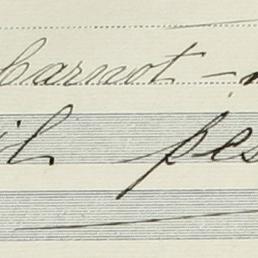 Carnot -
il pes